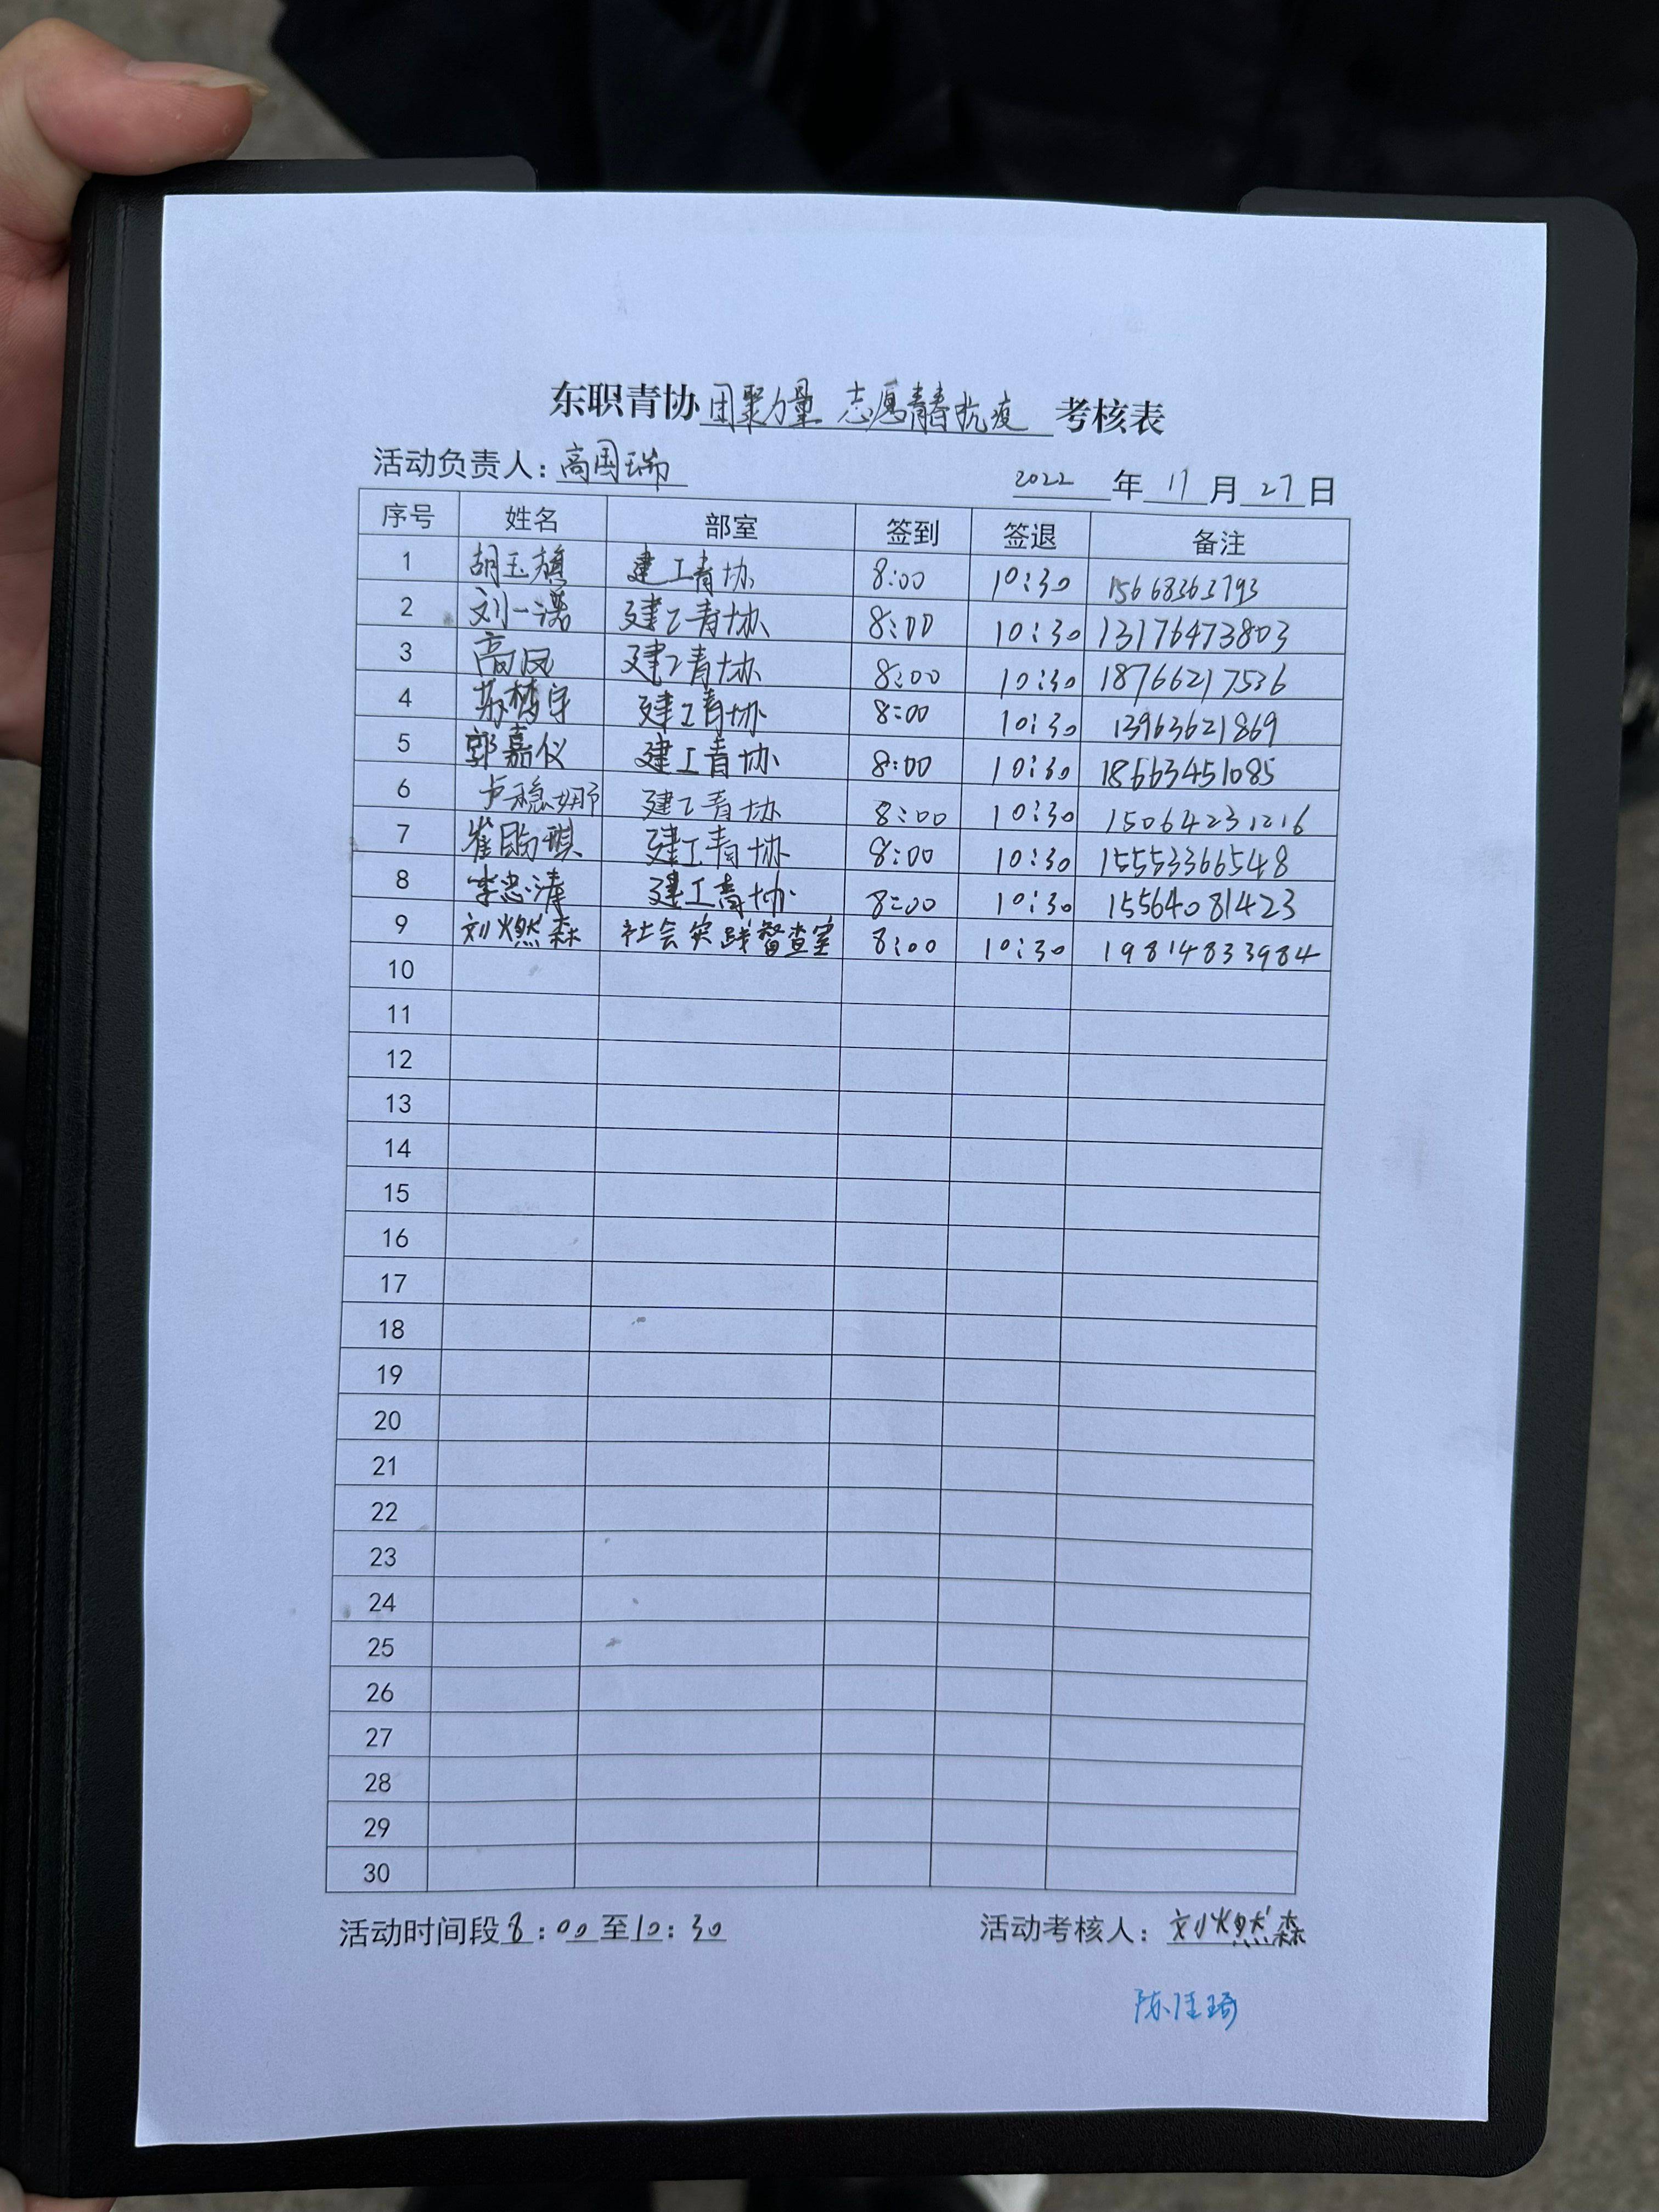 东职青协 团聚力量 志愿青春抗疫 考核表
活动负责人：高国瑞 2022 年 11 月 27 日
序号 姓名 部室 签到 签退 备注
1 胡玉旗 建工青协 8:00 10:30 15668363793
2 刘一诺 建工青协 8:00 10:30 13176473803
3 高凤 建工青协 8:00 10:30 18766217536
4 苏梦宇 建工青协 8:00 10:30 13963621869
5 郭嘉仪 建工青协 8:00 10:30 18663451085
6 卢稳娜 建工青协 8:00 10:30 15064231216
7 崔 琪 建工青协 8:00 10:30 15553366548
8 李忠涛 建工青协 8:00 10:30 15564081423
9 刘燃森 社会实践督查室 8:00 10:30 19814833984
10
11
12
13
14
15
16
17
18
19
20
21
22
23
24
25
26
27
28
29
30
活动时间段 8:00 至 10:30 活动考核人：刘燃森
陈佳琦